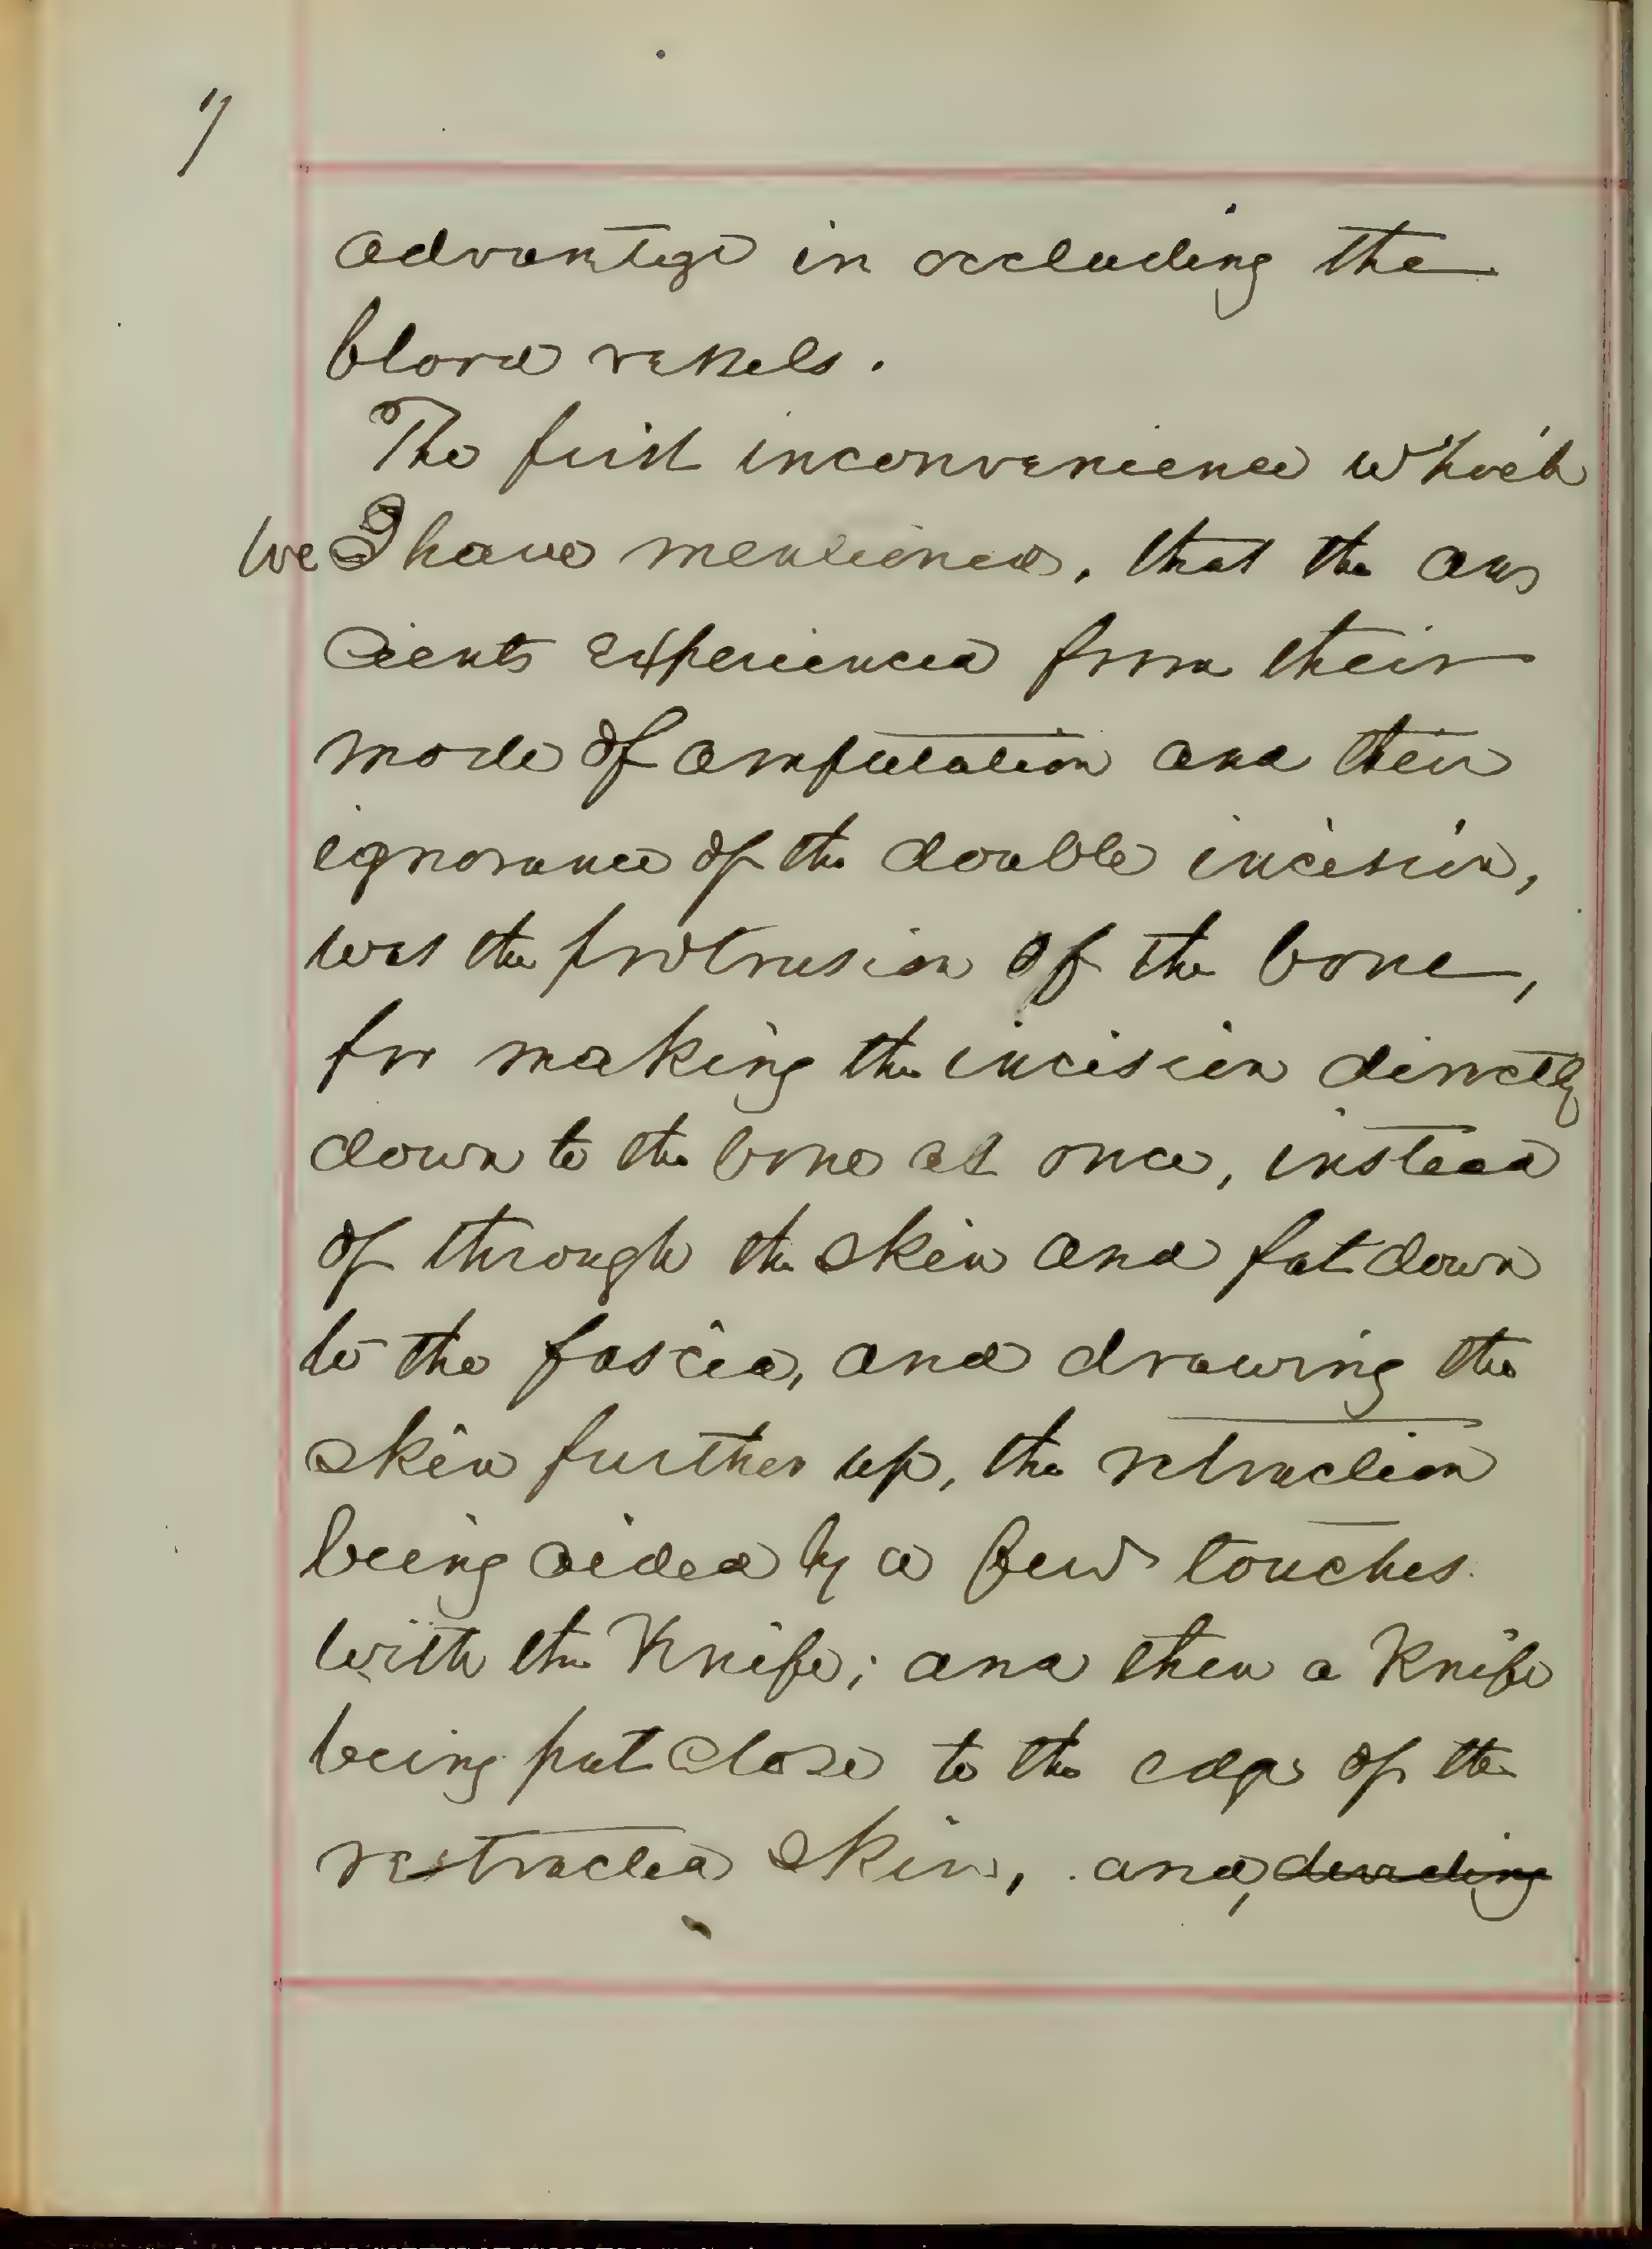 7
advantage in occluding the
blood vessels.
The first inconvenience which
we I have mentioned, that the an
cients experienced from their
mode of amputation and their
ignorance of the double incision,
was the protrusion of the bone,
for making the incision directly
down to the bone at once, instead
of through the skin and fat down
to the fascia, and drawing the
skin further up, the retraction
being aided by a few touches
with the Knife; and then a Knife
being put close to the edge of the
restracted skin, and, dividing